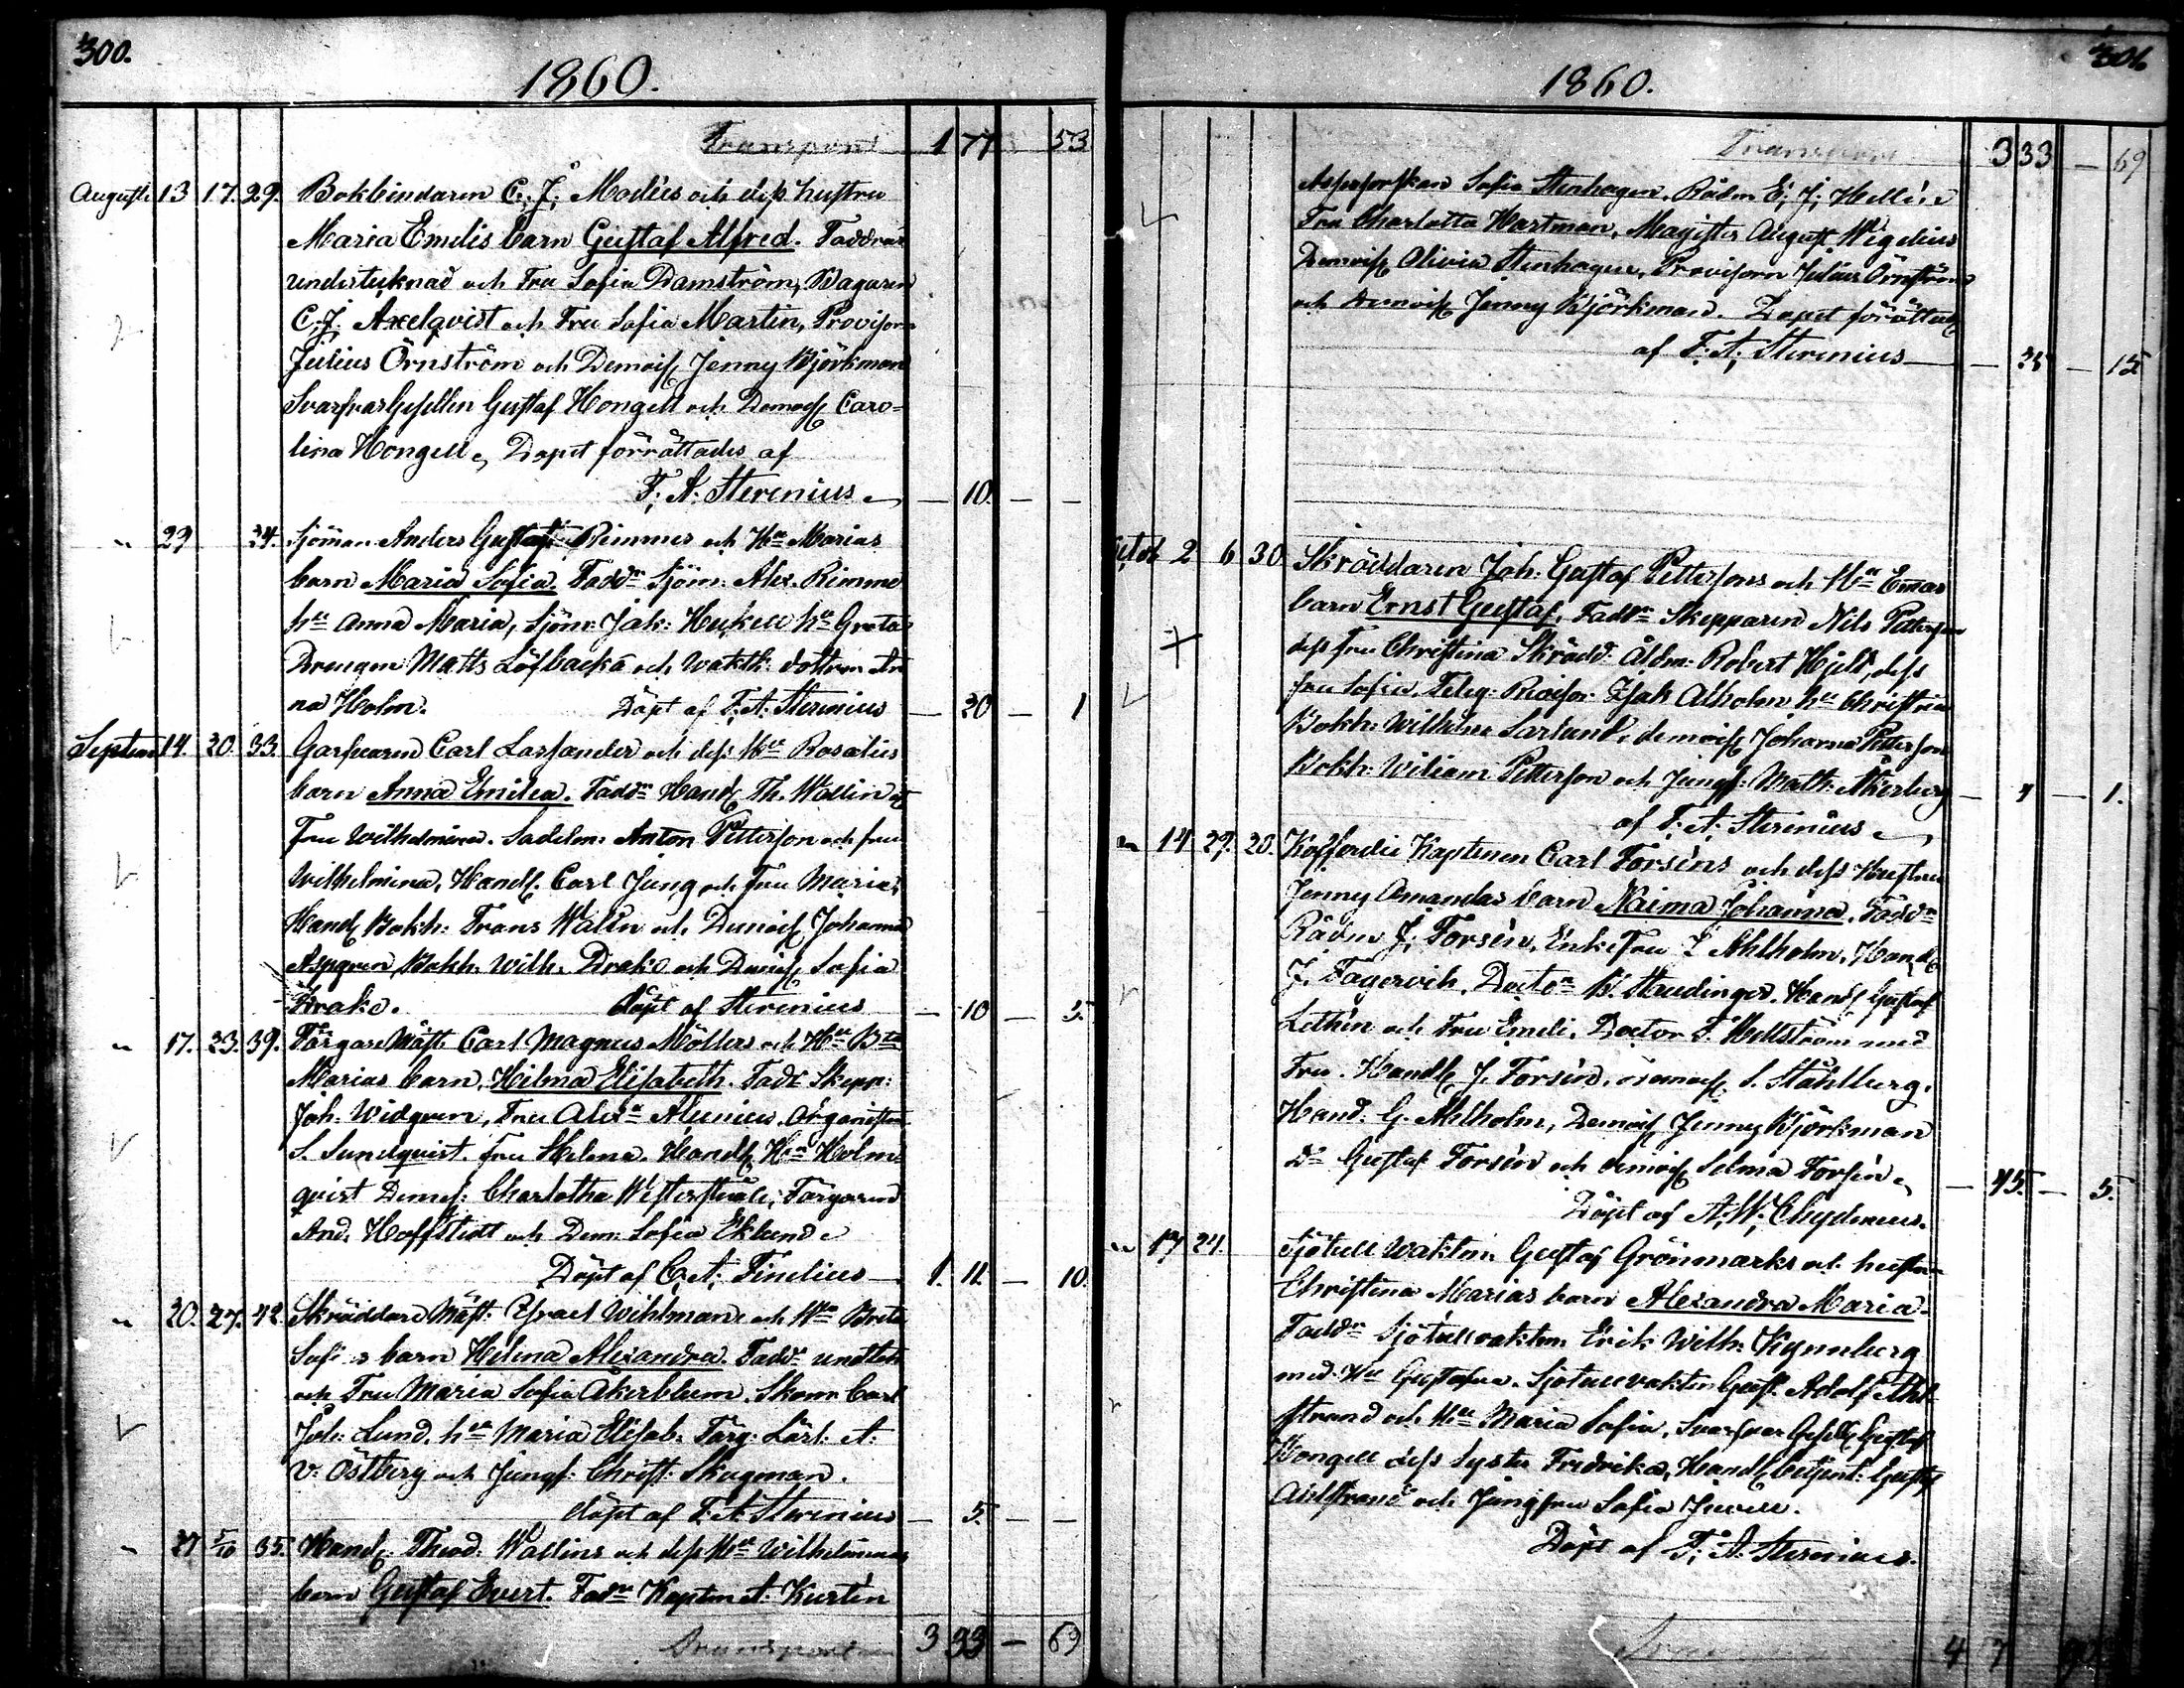 300.
1860.
Transport 1 77 53
Augusti 13 17. 29. Bokbindaren C. J. Modées och dess hustru
Maria Emelis barn Gustaf Alfred. Faddrar
undertecknad och Fru Sofia Damström, Bagaren
C. J. Axelqvist och Fru Sofia Martin, Provisorn
Julius Örnström och Demois. Jenny Björkman
Svarfvar Gesellen Gustaf Hongell och Demois. Caro-
lina Hongell, Dopet förrättades af
F. A. Sterenius — 10. — —
" 29 34. Sjöman Anders Gustaf Rimmes och Hu Marias
barn Maria Sofia. Faddr Sjöm. Alex. Rimme
hu Anna Maria, Sjöm. Jak: hu Greta
Drengen Matts Löfbacka och dottren An
na Holm. Döpt af F. A. Sterenius — 20 — 1
Septem 14. 20. 33. Garfvaren Carl Lassander och dess Hu Rosalies
barn Anna Emilia. Faddr Handl Th. Wallin
Fru Wilhelmina. Sadelm. Anton Petterson och fru
Wilhelmina, Handl. Carl Jung och Fru Maria,
Handl Bokh: Frans Walin och Demois Johanna
Aspgren, Bokh. Wilh. Drake och Demois Sofia
Drake. döpt af Sterenius — 10 — 5.
" 17. 23. 39. Färgare Mäst. Carl Magnus Möllers och Hu Bta
Marias barn, Hilma Elisabeth. Fadr Skepp:
Joh. Widgren, Fru Alexa Alenius. Organisten
S. Sundqvist. fru Helena. Handl Hm Holm
qvist Demois: Charlotta Westerstråle; Färgaren
And. Hoffstedt och Dem: Sofia Eklund
Döpt af C. A. Finelius — 1. 11. — 10.
" 20. 27. 42. Skräddare Mäst: Israel Wihlmans och Hu Breta
Sofias barn Helena Alexandra. Faddr
och Fru Maria Sofia Åkerblum. Skom: Carl
Joh: Lund. hu Maria Elisab: Färg: Lärl: A.
V. Östberg och Jungf: Christ: Skogman.
döpt af F. A. Sterenius — 5. — —
" 27 5/10 35. Handl. Theod. Wallins och dess Hu Wilhelminas
barn Gustaf Evert. Fadr Kapten A. Kurtén
Transport 3 33 — 69
301
1860.
Transport 3 33 — 69
Assessorskan Sofia Stenhagen. Rådm E. J. Hellén
Fru Charlotta Hartman, Magister August Wegelius
Demois Olivia Stenhagen, Provisorn Julius Örnström
och Demois Jenny Björkman. Dopet förrättadt
af F. A. Sterenius — 35 — 15
Octob 2 6 30 Skräddaren Joh: Gustaf Pettersons och Hu Emas
barn Ernst Gustaf. Faddr Skepparen Nils Petterson
dess fru Christina Skrädd. Åldm: Robert Hjelt, dess
fru Sofia. Isak Alholm hu Christina
Bokh: Wilhelm Sarlund, demois Johanna Petterson
Bokh: Wiliam Petterson och Jungf: Math. Åkerberg — 4 — 1.
af F. A. Sterenius
" 14 29. 20. Kofferdie Kaptenen Carl Forséns och dess Hustru
Jenny Amandas barn Naima Johanna. Faddr
Rådm J. Forsén, Enkefru L Ahlholm, Handl
J. Fagervik, Doctor B. Staudinger. Handl Gustaf
Lethén och Fru Emeli. Doctor F. Hellström med
Fru. Handl J. Forsén. demois. S. Ståhlberg.
Hand. G. Ahlholm, Demois Jenny Björkman
Do Gustaf Forsén och demois Selma Forsén — 45. — 5.
Döpt af A. W. Chydenius.
" 17 24. Sjötull Waktm. Gustaf Grönmarks och hustru
Christina Marias barn Alexandra Maria.
Faddr Sjötullvaktm Erik Wilh: Kynnberg
med Hu Gustafva. Sjötullvaktm Gust. Adolf Ahl-
strand och Hu Maria Sofia, Svarfvar Gesell Gustaf
Hongell dess syster Fredrika, Handl betjent: Gustaf
Ahlstrand och Jungfru Sofia
Döpt af F. A. Sterenius.
4